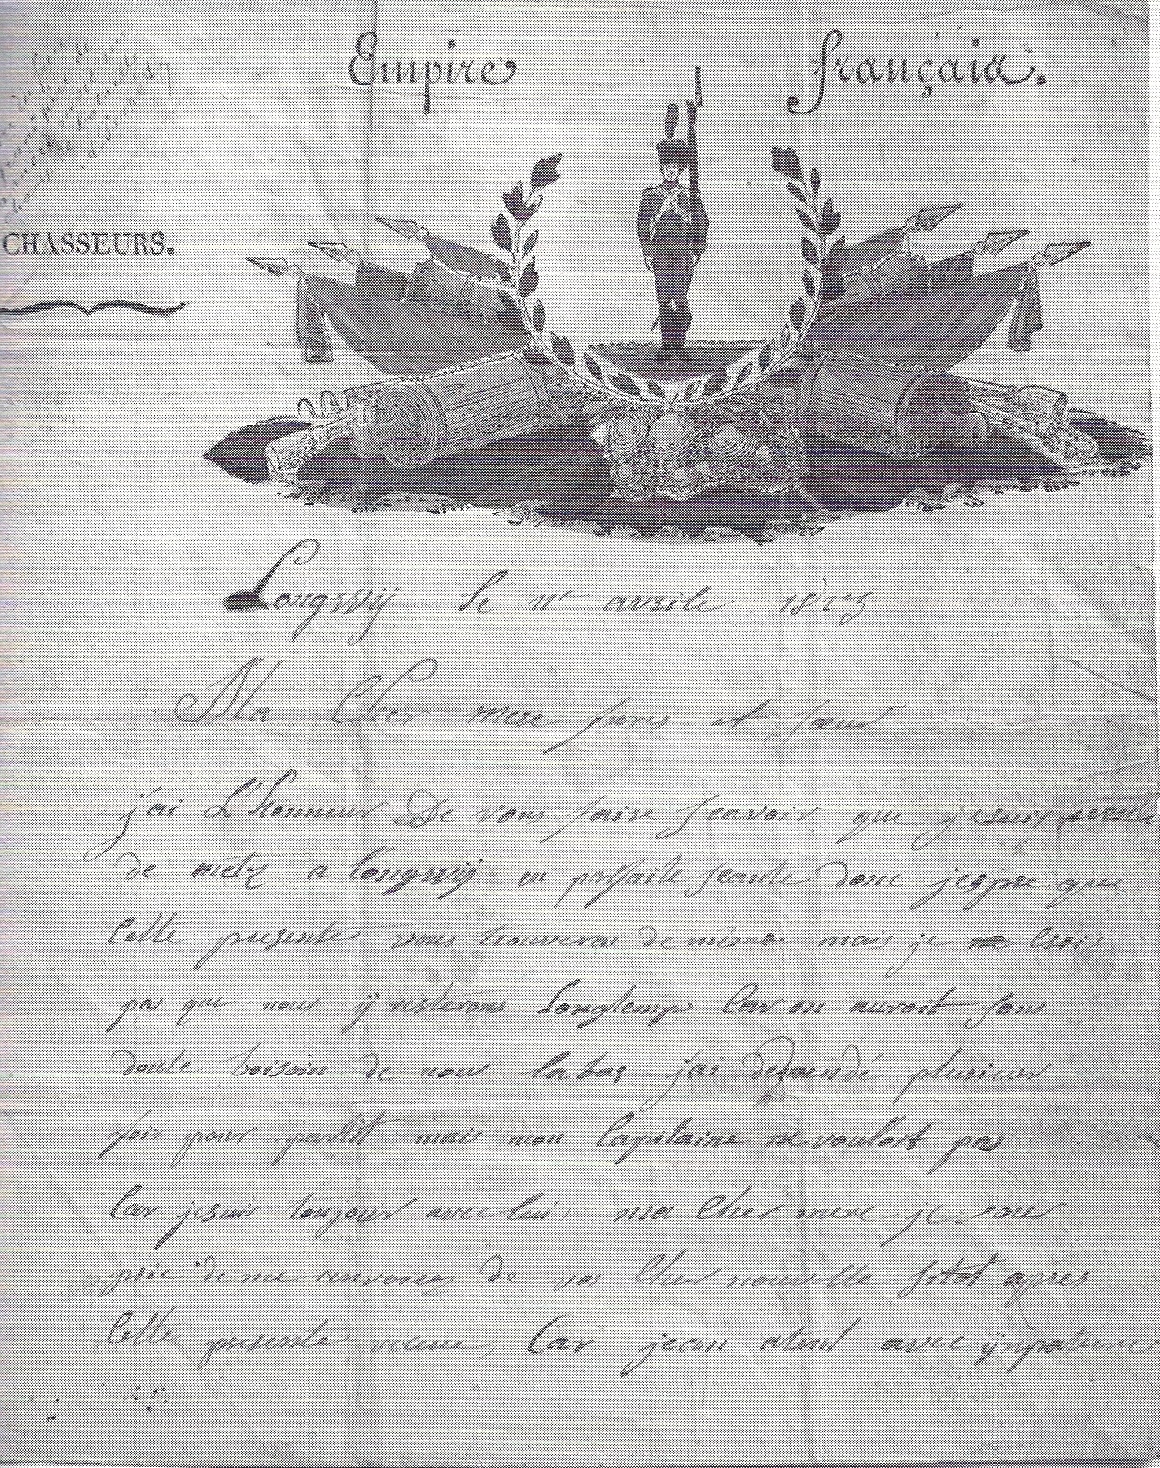 Empire français.
CHASSEURS.
Longwij le 11 avrile 1813
Ma Cher mere frere et soeur
j'ai L'honneur De vous faire scavoir que je
de metz a longwij en parfaite santé donc jespre que
Cette presente vous trouverai de même mais je ne Croi
pas que nous ÿ resterons Longtemp Car on auroit sans
doute besoin de nous labas jai demandé plusieur
fois pour mais mon Capitaine ne vouloit pas
Car je suis toujour avec lui ma Cher mere je vous
prie de me de vos Cher nouvelle sitot apres
Cette presente recue Car jean atent avec ÿnpatience